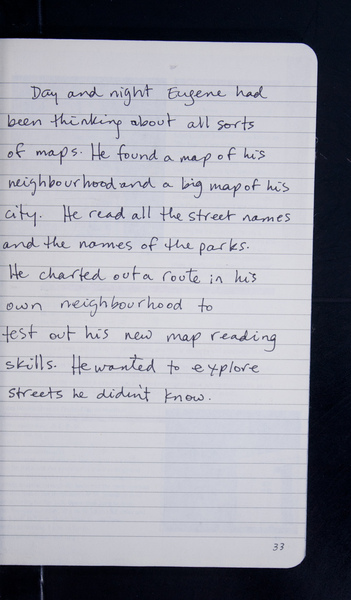 Day and night Eugene had
been thinking about all sorts
of maps. He found a map of his
neighbourhood and a big map of his
city. He read all the street names
and the names of the parks.
He charted out a route in his
own neighbourhood to
test out his new map reading
skills. He wanted to explore
streets he didin't know.
33